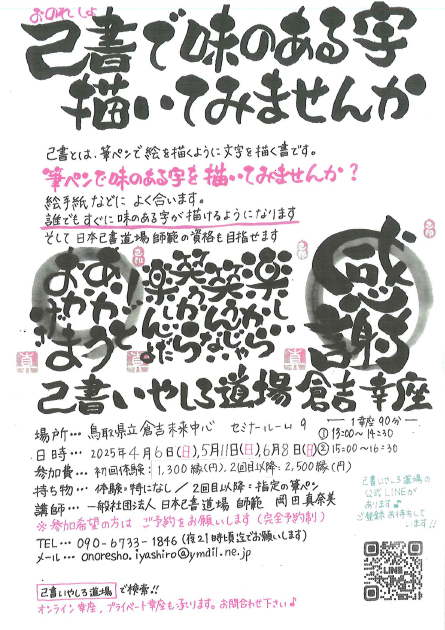 おのれしょ
己書で味のある字
描いてみませんか
己書とは、筆ペンで絵を描くように文字を描く書です。
筆ペンで味のある字を描いてみませんか?
絵手紙などに よく合います。
誰でもすぐに味のある字が描けるようになります
そして 日本己書道場 師範の資格も目指せます
ありがとう
おかげさま
感謝
己書いやしろ道場 倉吉幸座
場所… 鳥取県立倉吉未来中心 セミナールーム9
日時… 2025年4月6日(日),5月11日(日),6月8日(日)
1幸座90分
①13:00~14:30
②15:00~16:30
参加費… 初回体験:1,300縁(円), 2回目以降:2,500縁(円)
持ち物… 体験=特になし / 2回目以降=指定の筆ペン
講師… 一般社団法人 日本己書道場 師範 岡田真奈美
※参加希望の方は ご予約をお願いします(完全予約制)
TEL… 090-6733-1846(夜21時頃迄でお願いします)
メール… onoresho.iyashiro@ymail.ne.jp
己書いやしろ道場の
公式LINEが
あります♪
ご登録お待ちして
います!!
LINE
己書いやしろ道場 で検索!!
オンライン幸座, プライベート幸座も承ります。お問合わせ下さい♪